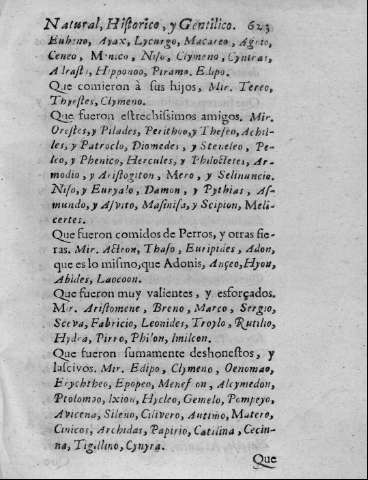 Natural, Historico, y Gentilico. 623
Euheno, Ayax, Lycurgo, Macareo, Ageto,
Ceneo, Menico, Niso, Clymeno, Cyniras,
Adrasto, Hipponoo, Piramo, Edipo.
Que comieron à sus hijos, Mir. Tereo,
Thyestes, Clymeno.
Que fueron estrechissimos amigos. Mir.
Orestes, y Pilades, Perithoo, y Theseo, Achil-
les, y Patroclo, Diomedes, y Steneleo, Pe-
leo, y Phenico, Hercules, y Philoctetes, Ar-
modio, y Aristogiton, Mero, y Selinuncio.
Niso, y Euryalo, Damon, y Pythias, As-
mundo, y Asvito, Masinisa, y Scipion, Meli-
certes.
Que fueron comidos de Perros, y otras fie-
ras. Mir. Acteon, Thaso, Euripides, Adon,
que es lo mismo, que Adonis, Anceo, Hyou,
Abides, Laocoon.
Que fueron muy valientes, y esforçados.
Mir. Aristomene, Breno, Marco, Sergio,
Sceva, Fabricio, Leonides, Troylo, Rutilio,
Hydra, Pirro, Philon, Imilcon.
Que fueron sumamente deshonestos, y
lascivos. Mir. Edipo, Clymeno, Oenomao,
Erychtheo, Epopeo, Menefron, Alcymedon,
Ptolomao, Ixion, Hycleo, Gemelo, Pompeyo,
Avicena, Sileno, Cilivero, Autino, Matero,
Cinicos, Archidas, Papirio, Catilina, Cecin-
na, Tigillino, Cynyra.
Que